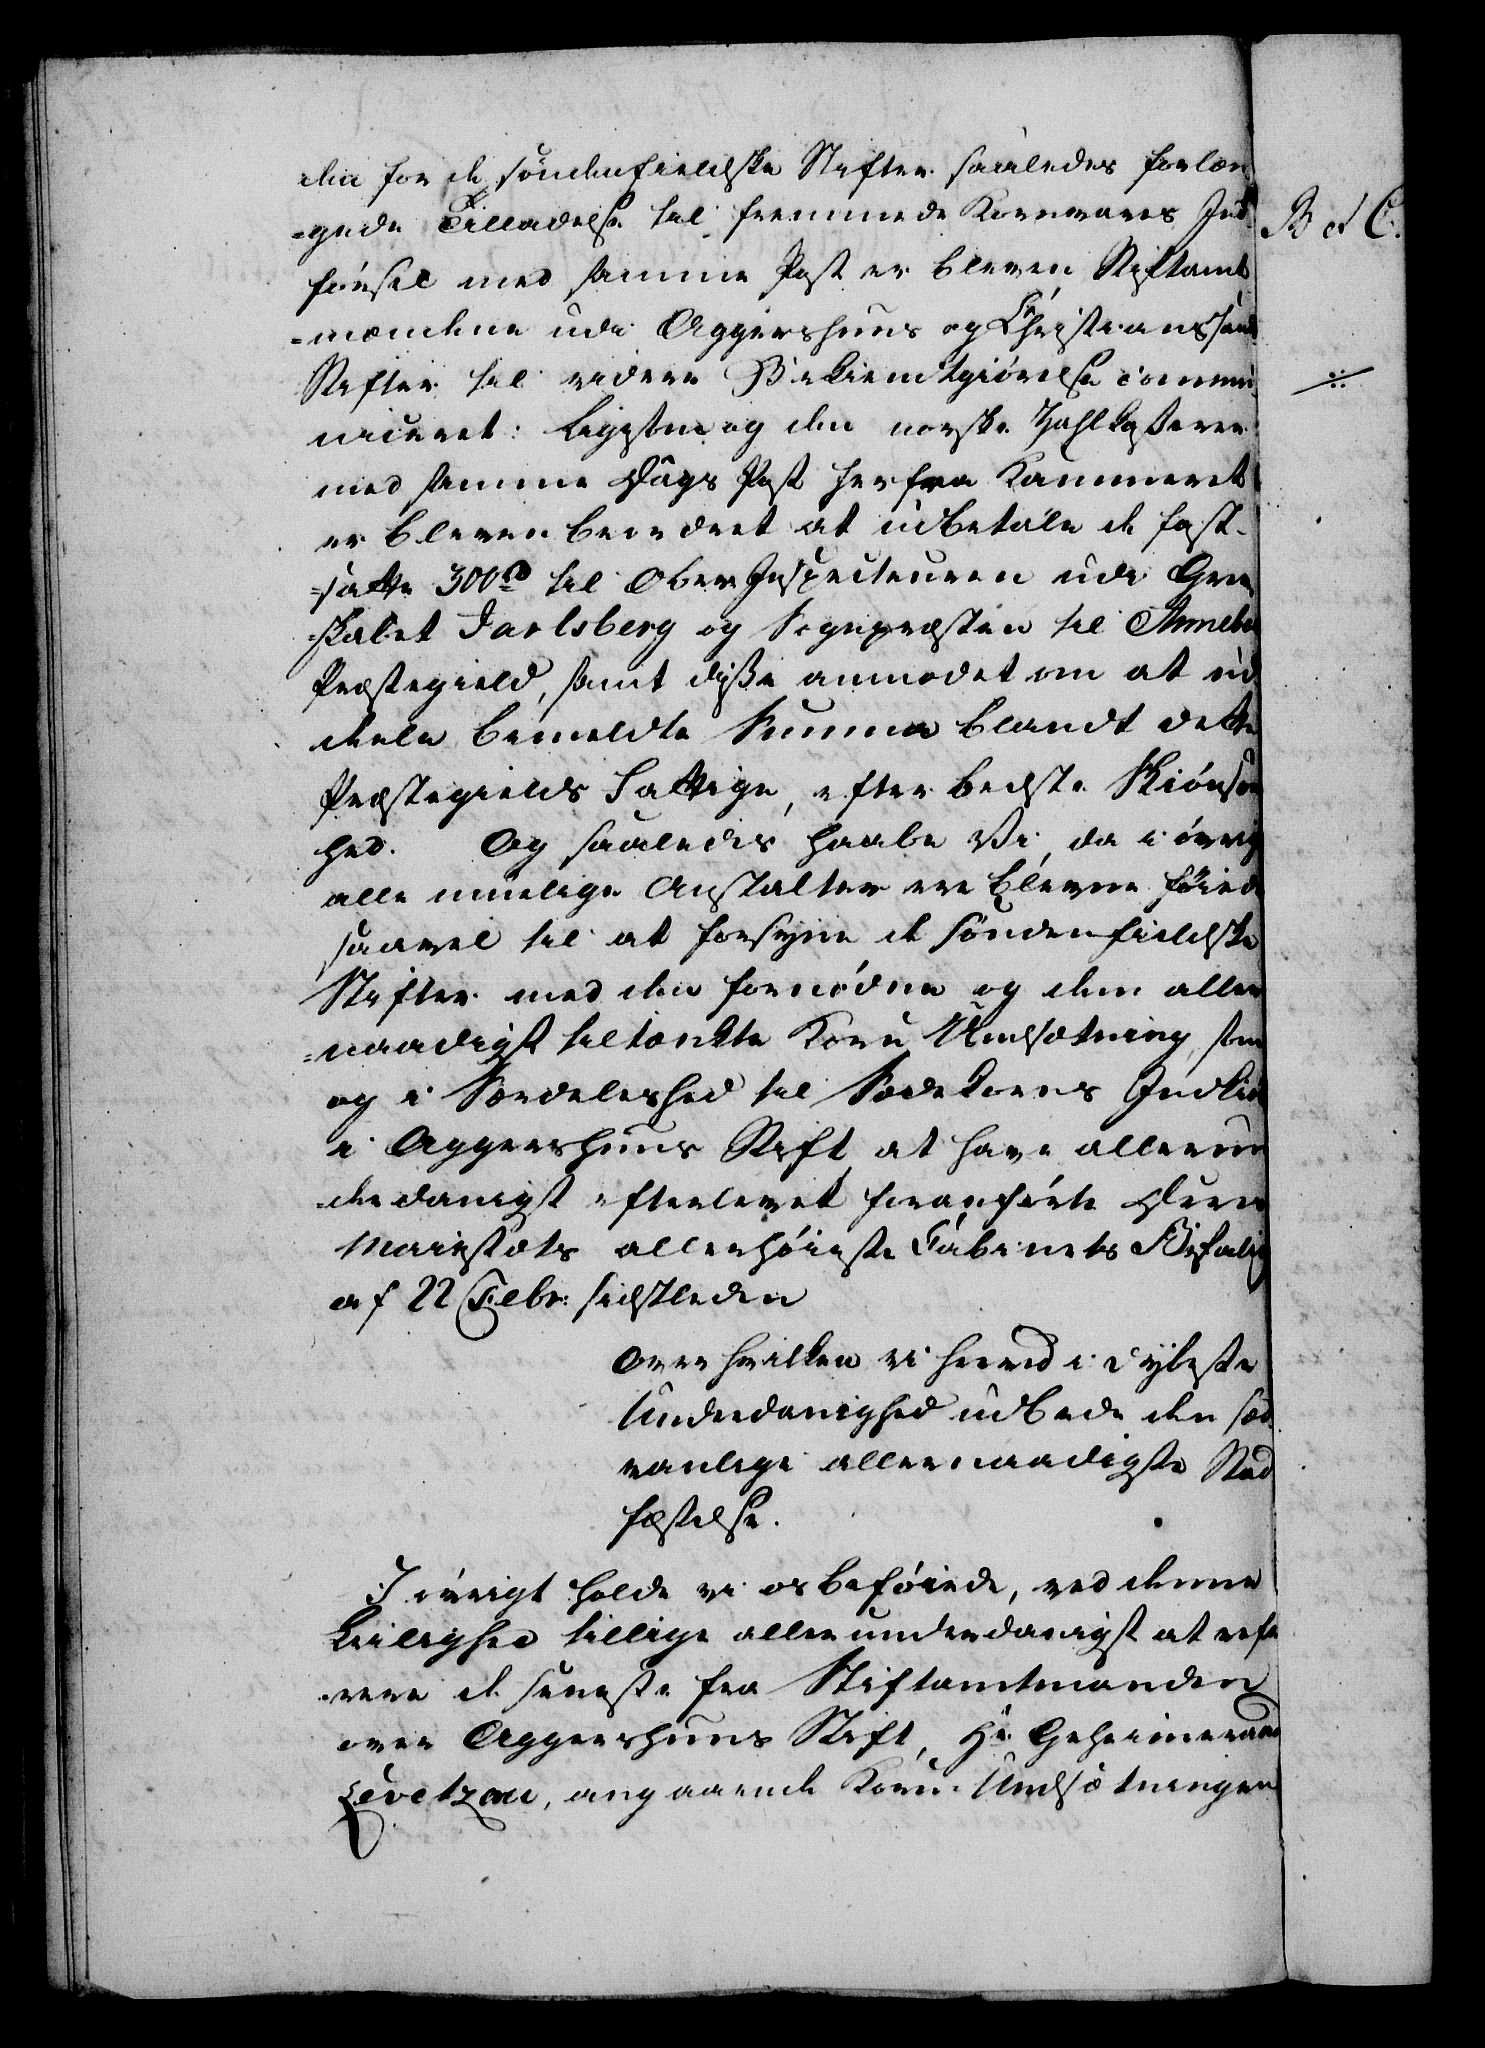 den for de søndenfieldske Stifter saaledes forlæn
=gede Tilladelse til fremmede Kornvares Ind
førsel med samme Post er bleven Stiftamt
=mændene udi Aggershuus og Christianssands
Stifter til videre Bekiendtgiørelse commu
niceret: Ligesom og den norske Zahlkasserer
med samme Dags Post herfra Kammeret
er bleven beordret at udbetale de fast-
=satte 300 rd til Ober Inspecteuren udi Grev
skabet Jarlsberg og Sognepræsten til Anneboe
Præstegield, samt disse anmodet om at ud
deele bemeldte Summa blandt dette
Præstegields Fattige, efter bedste Skiønsom
hed. Og saaledes haabe Vi, da i øvrig
alle muelige Anstalter ere blevne føiede
saavel til at forsyne de søndenfieldske
Stifter med den fornødne og dem aller
=naadigst tiltænkte Korn Undsætning, som
og i Særdeleshed til Sædekorns Indkiøb
i Aggershuus Stift, at have allerun
=derdanigst efterlevet foranførte Deres
Maiestæts allerhøieste Cabinets Befaling
af 22 Febr: sidstleden
Over hvilken vi herved i dybeste
Underdanighed udbede den sæd
vanlige allernaadigste Stad
fæstelse.
I øvrigt holde vi os beføiede, ved denne
Leilighed tillige allerunderdanigst at refe
=rere det seneste fra Stiftamtmanden
over Aggershuus Stift, Hr. Geheimeraad
Levetzau, angaaende Korn-Undsætningen
B et C.